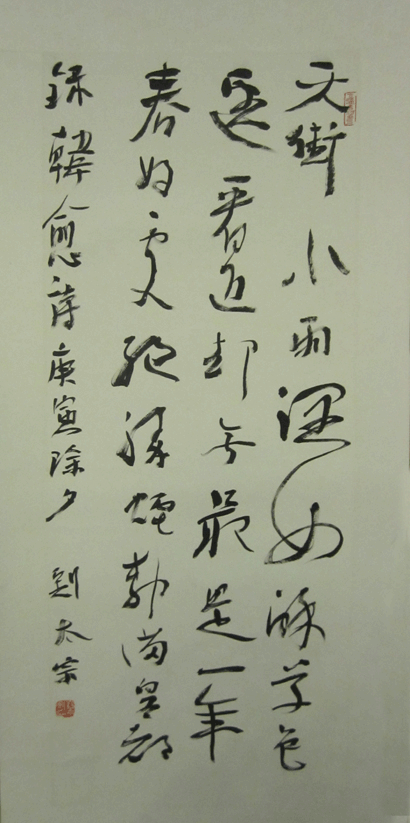 天街小雨润如酥草色
遥看近却無最是一年
春好処绝勝煙柳满皇都
録韓愈詩庚寅除夕 劉太宗